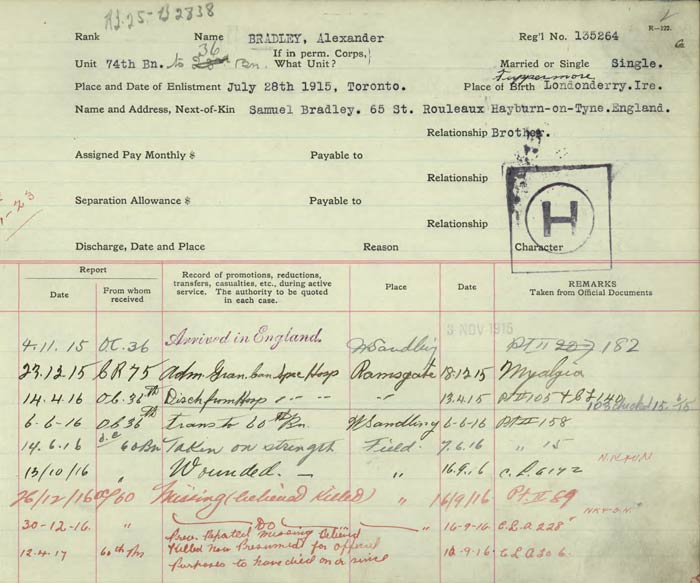 RJ.25-B2838
R-122.
Rank Name BRADLEY, Alexander Reg'l No. 135264
Unit 74th Bn. to 36 Bn. If in perm. Corps, What Unit? Married or Single Single.
Tuppermore
Place and Date of Enlistment July 28th 1915, Toronto. Place of Birth Londonderry.Ire.
Name and Address, Next-of-Kin Samuel Bradley. 65 St. Rouleaux Hayburn-on-Tyne.England.
Relationship Brother.
Assigned Pay Monthly $ Payable to
Relationship
Separation Allowance $ Payable to
Relationship
H
Discharge, Date and Place Reason Character
Report
Date From whom received Record of promotions, reductions, transfers, casualties, etc., during active service. The authority to be quoted in each case. Place Date REMARKS Taken from Official Documents
3 NOV 1915
4.11.15 O.C.36 Arrived in England. W Sandling Pt II 207 182
23.12.15 CR75 Adm. Gran. Can. Spec Hosp Ramsgate 18.12.15 Myalgia
14.4.16 O.C.36th Disch from Hosp " 13.4.15 Pt II 105 +
6-6-16 O.C.36th Trans to 60th Bn. W Sandling 6-6-16 Pt II 158
14.6.16 O.C 60Bn Taken on strength Field. 7.6.16 " 15
13/10/16 Wounded. — " 16.9.16 C.L.
26/12/16 OC/60 Missing (believed killed) " 16/9/16 Pt. II 89
30-12-16. " DO " 16-9-16 C.L.A 228
12.4.17 60th Bn Prev. reported missing believed
killed now Presumed for official
purposes to have died on or since 16.9.16 C.L.A 306.